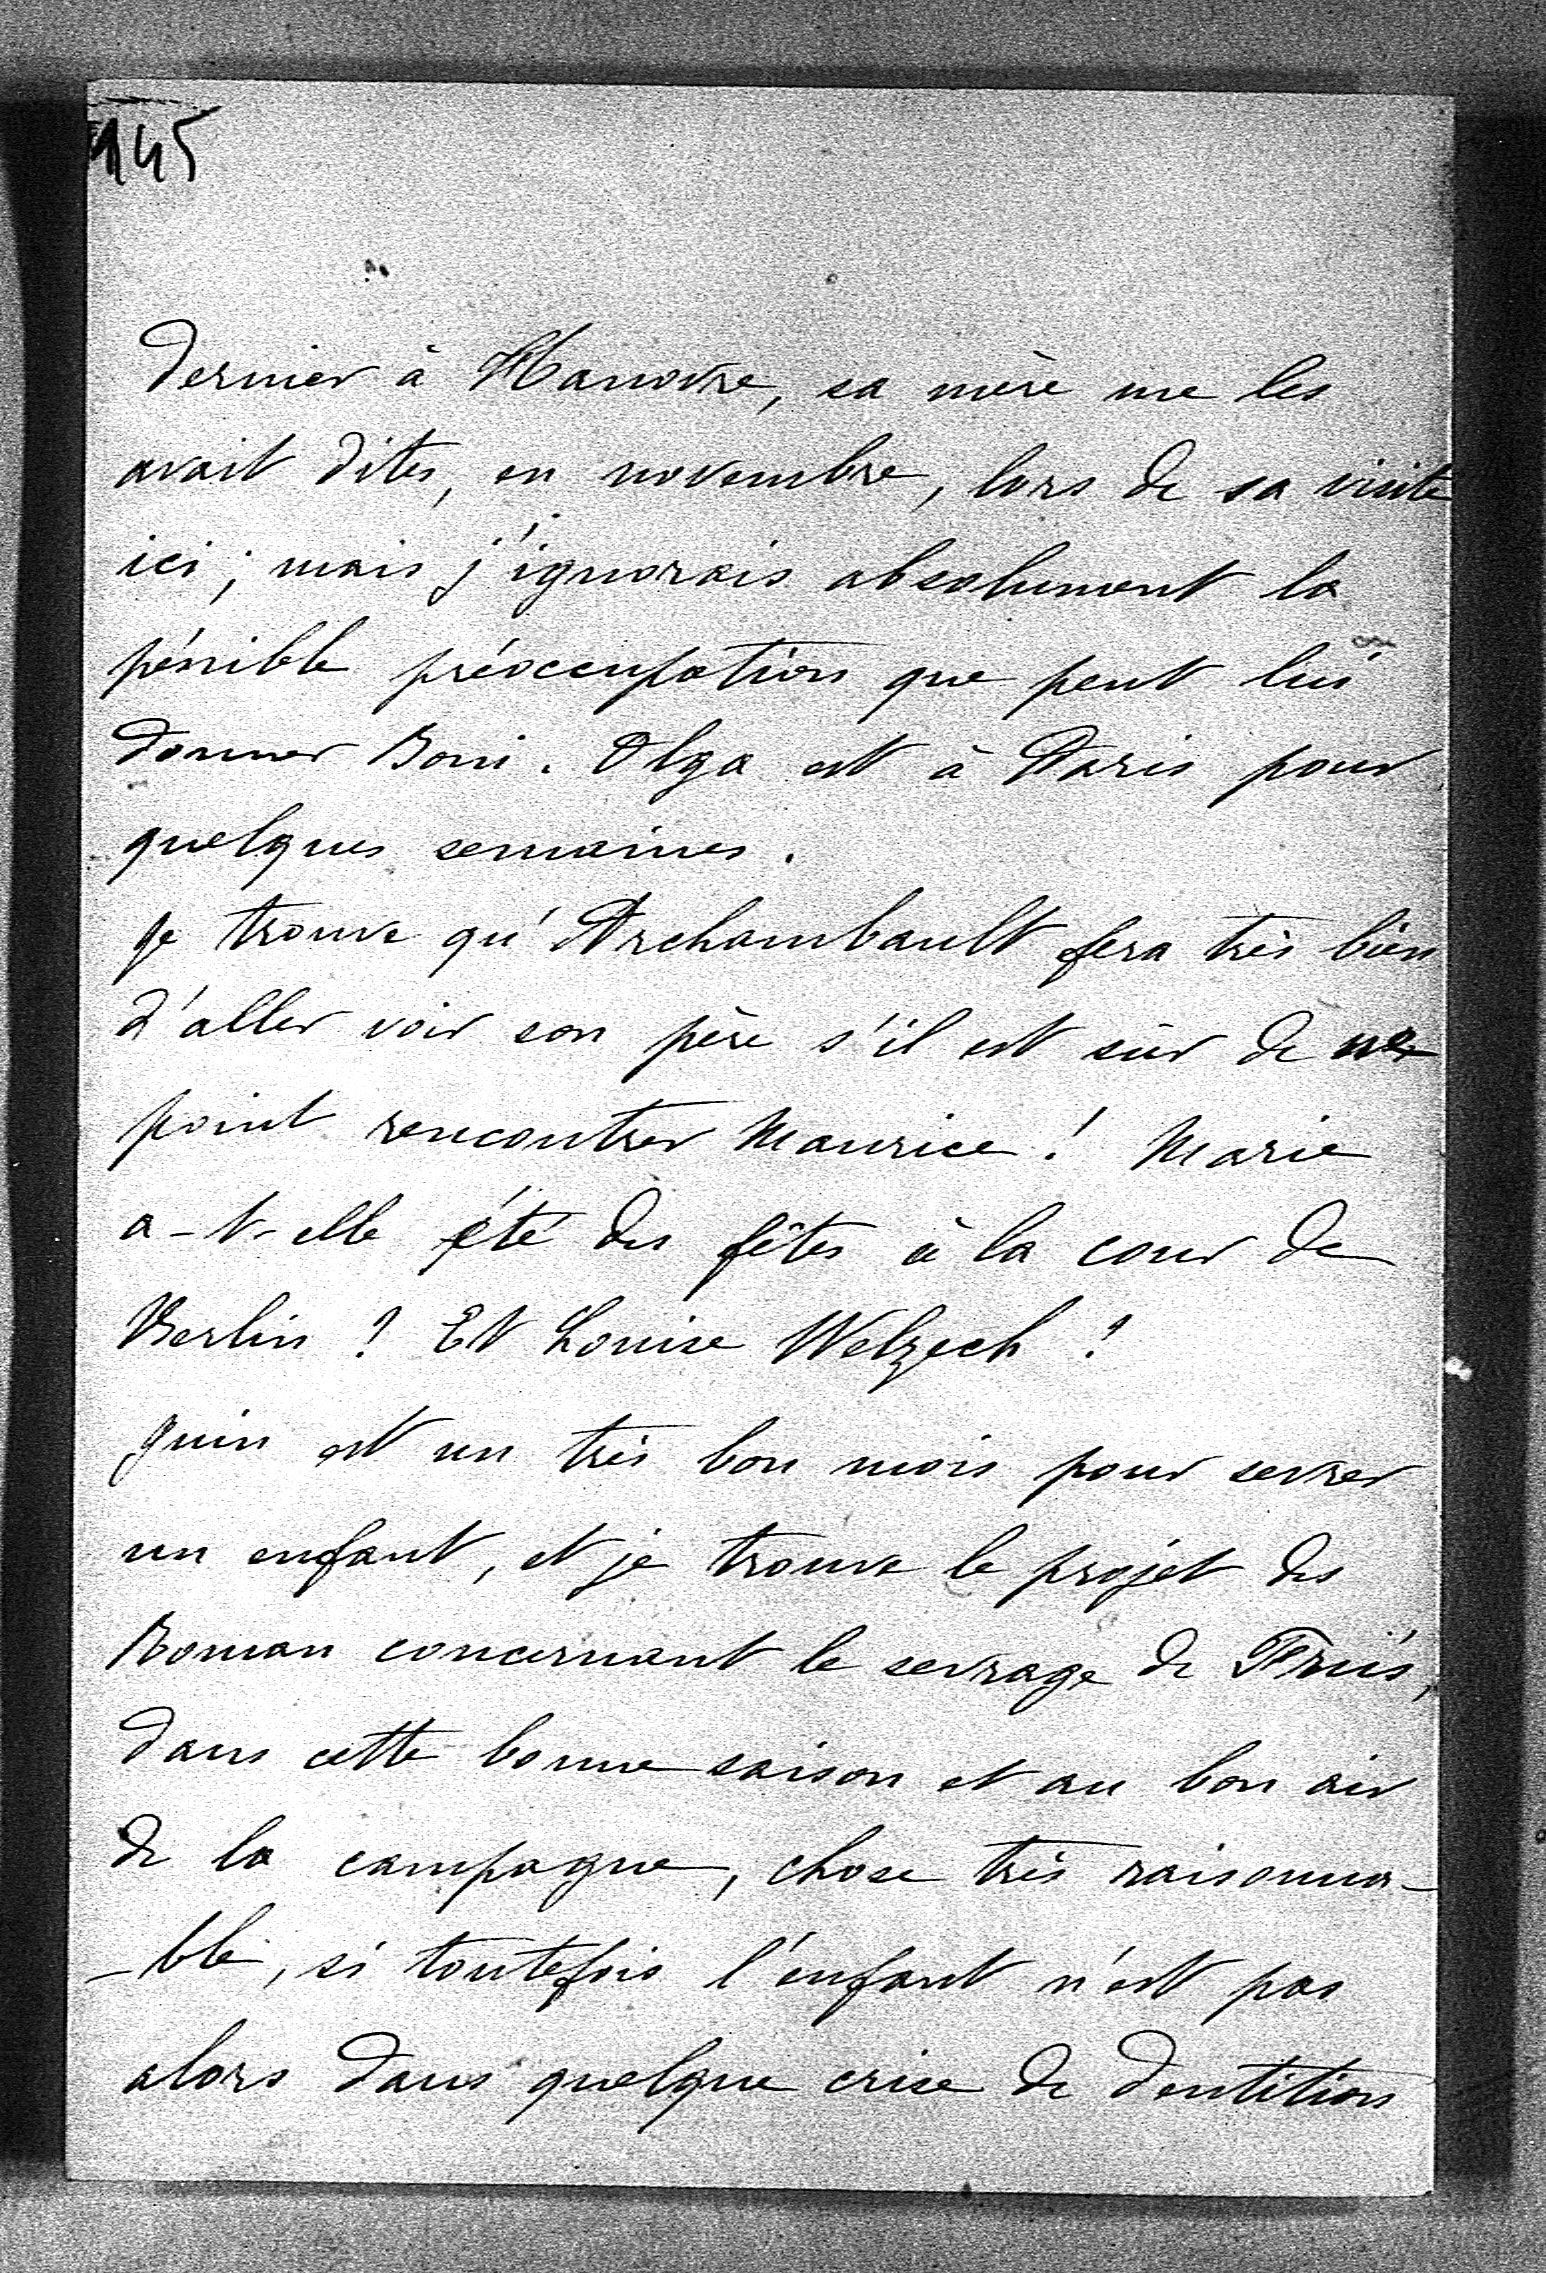 145
dernier à Hanovre, sa mère me les
avait dites, en novembre, lors de sa visite
ici ; mais j'ignorais absolument la
pénible préoccupation que peut lui
donner Boni. Olga est à Paris pour
quelques semaines.
Je trouve qu'Archambault fera très bien
d'aller voir son père s'il est sûr de ne
point rencontrer Maurice ! Marie
a-t-elle été des fêtes à la cour de
Berlin ? Et Louise Welzech ?
Juin est un très bon mois pour sevrer
un enfant, et je trouve le projet des
Roman concernant le sevrage de
dans cette bonne saison et au bon air
de la campagne, chose très raisonna-
-ble, si toutefois l'enfant n'est pas
alors dans quelque crise de dentition